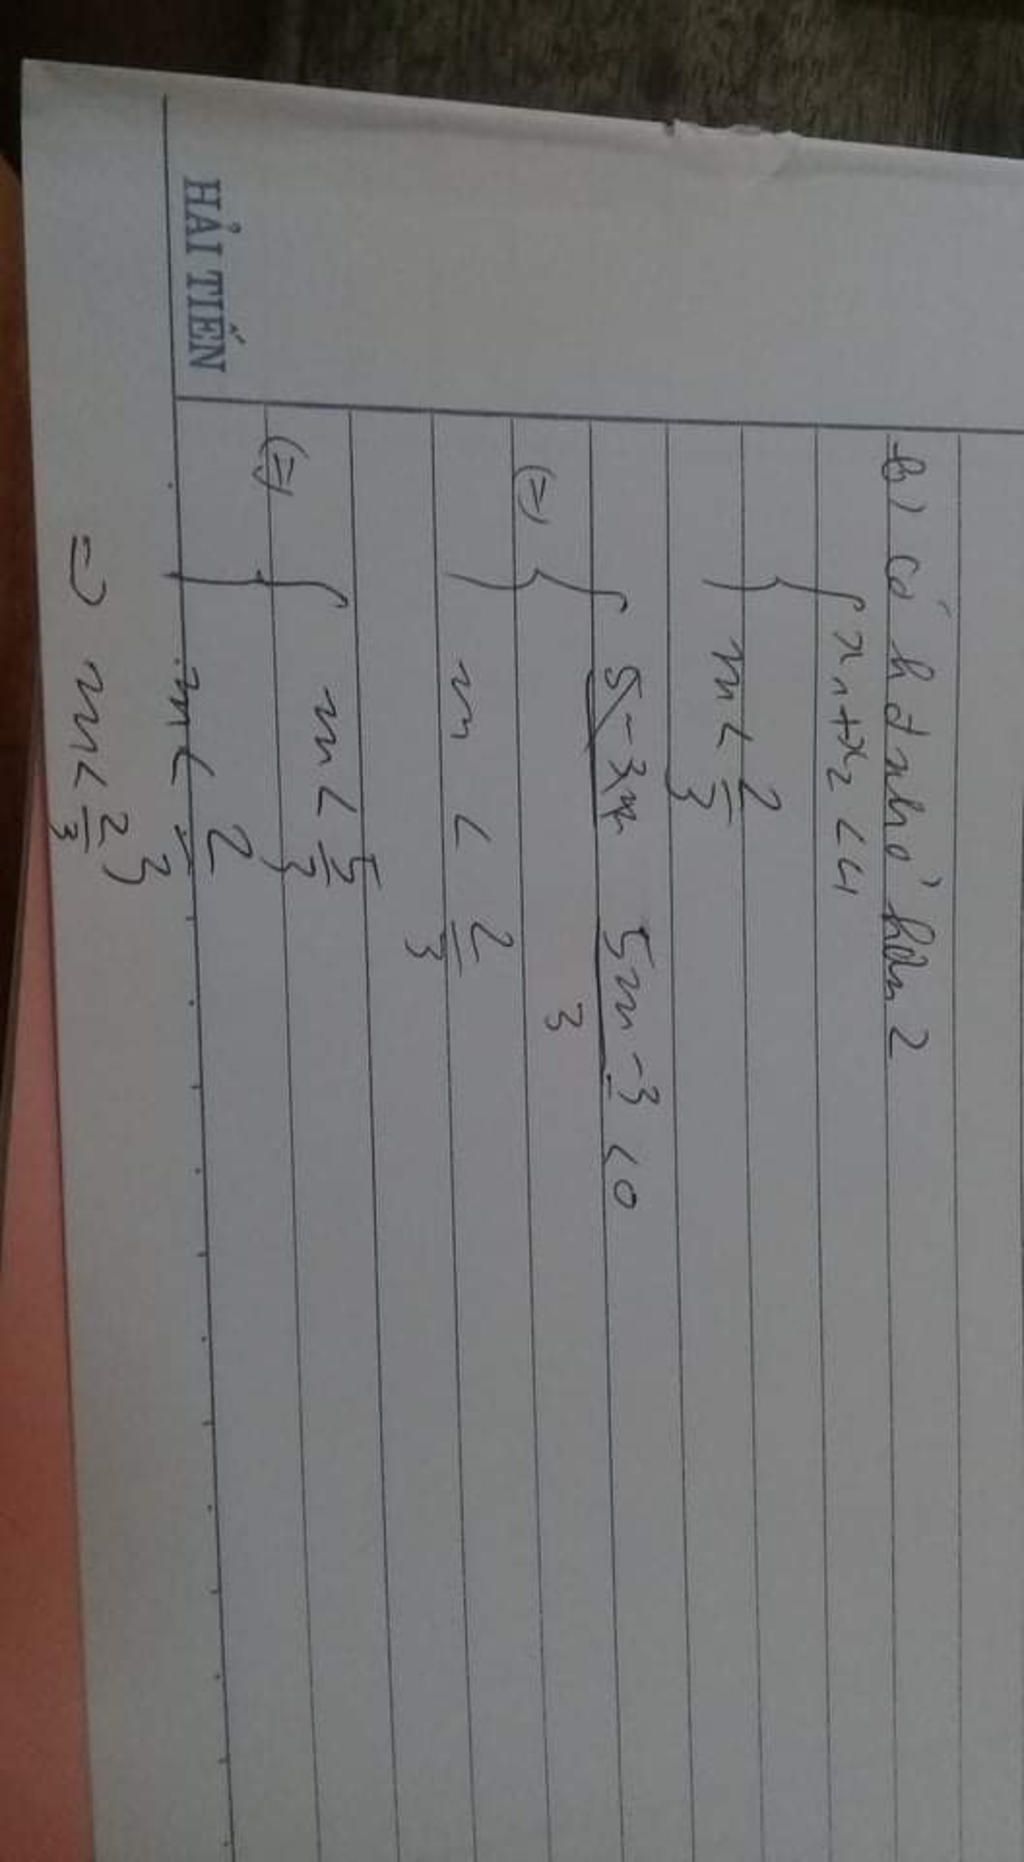 HẢI TIẾN
b) có hđ nhỏ hơn 2
{ x₁+x₂ < 4
m < 2/3
(=) { 5m-3 < 0
3
m < 2/3
(=) { m < 5/3
m < 2/3
=) m < 2/3